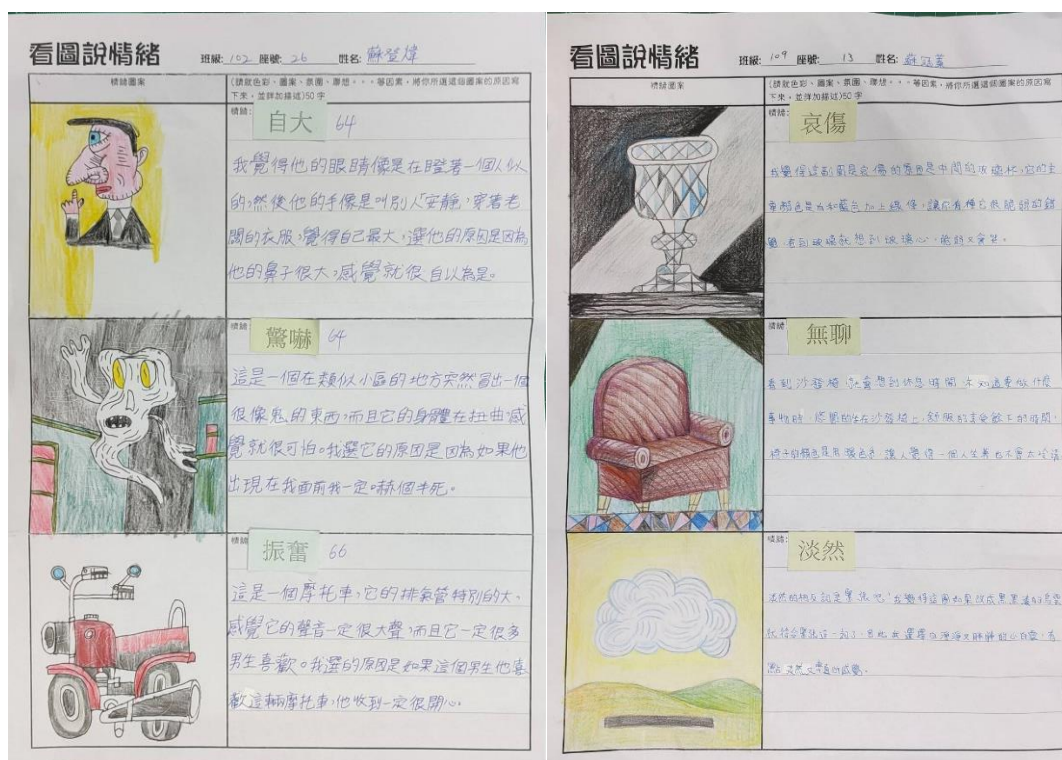 看圖說情緒
班級: 102 座號: 26 姓名: 蘇登煒
情緒圖案
(請就色彩、圖案、氛圍、聯想。。。等因素，將你所選這個圖案的原因寫
下來，並詳加描述)50 字
情緒: 自大 64
我覺得他的眼睛像是在瞪著一個人似
的,然後他的手像是叫別人「安靜,穿著老
闆的衣服,覺得自己最大,選他的原因是因為
他的鼻子很大,感覺就很自以為是。
情緒: 驚嚇 64
這是一個在類似小區的地方突然冒出一個
很像鬼的東西,而且它的身體在扭曲,感
覺就很可怕。我選它的原因是因為如果他
出現在我面前我一定。赫個半死。
情緒: 振奮 66
這是一個摩托車,它的排氣管特別的大,
感覺它的聲音一定很大聲,而且它一定很多
男生喜歡。我選的原因是如果這個男生也喜
歡這輛摩托車,他收到一定很開心。
看圖說情緒
班級: 109 座號: 13 姓名: 蘇
情緒圖案
(請就色彩、圖案、氛圍、聯想。。。等因素，將你所選這個圖案的原因寫
下來，並詳加描述)50 字
情緒: 哀傷
我覺得這副圖是哀傷的原因是中間的玻璃杯,它的主
要顏色是灰和藍色加上線條,讓你有種它很脆弱的錯
覺,看到玻璃就想到玻璃心,脆弱又
情緒: 無聊
看到沙發椅 就會想到休息時間,不知道要做什麼
事物時,悠悠的坐在沙發椅上,舒服的享受餘下的時間,
椅子的顏色是用暖色系,讓人覺得一個人坐著也不會太
情緒: 淡然
淡然的
我覺得這圖如果改成黑黑的烏雲
就符合 這一詞了,因此我選擇白淨淨又胖胖的小白雲,有
點淡然 的感覺。